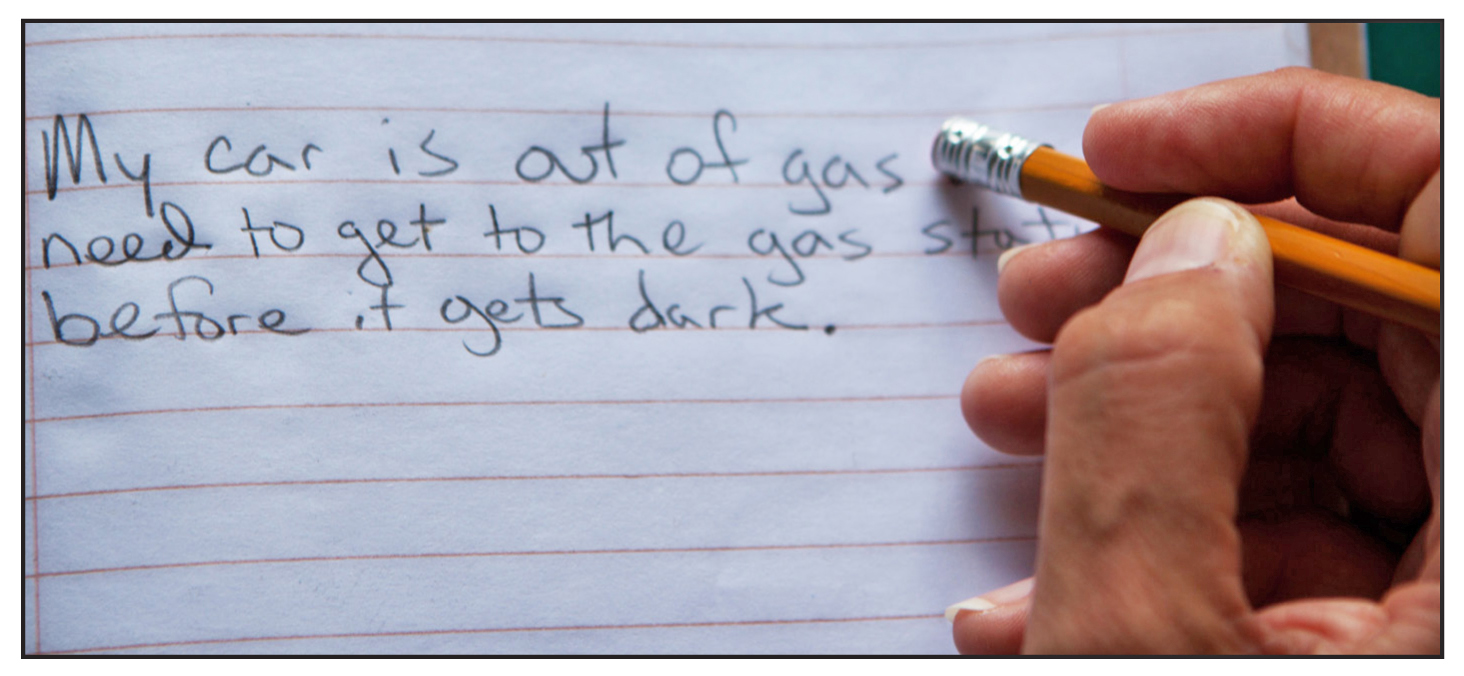 My car is out of gas
need to get to the gas
before it gets dark.